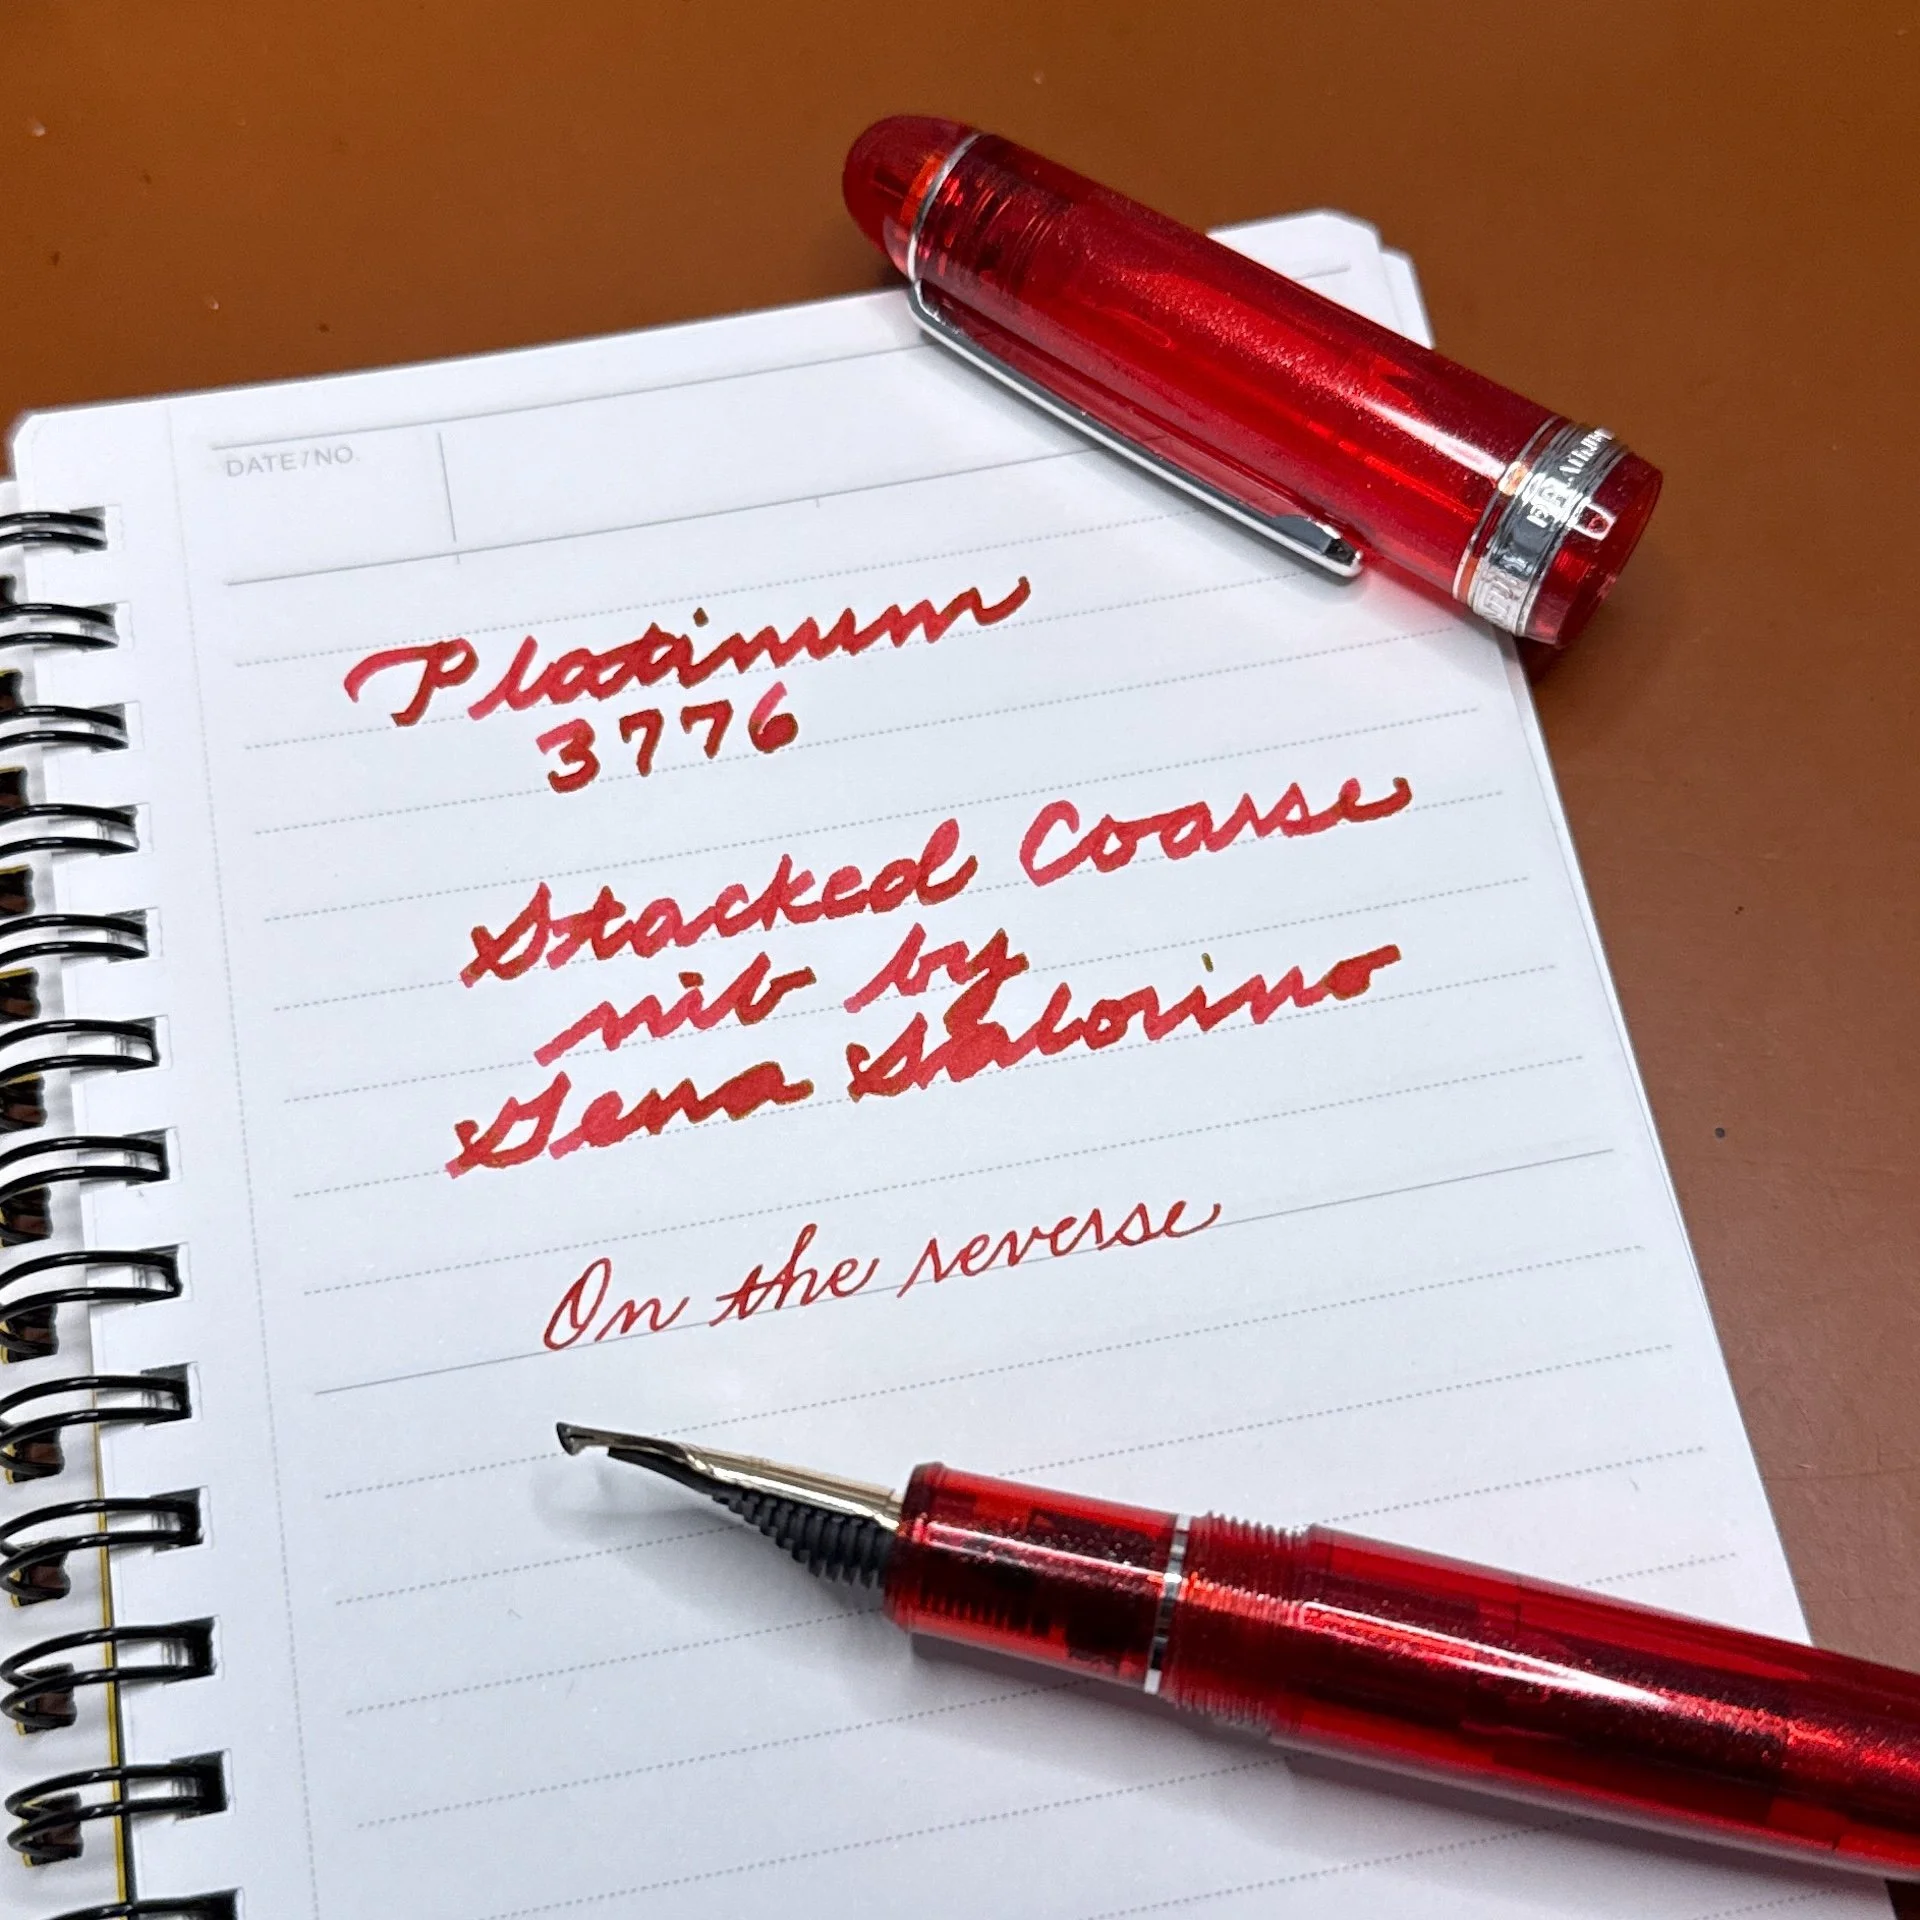 DATE/NO.
Platinum
3776
Stacked Coarse
nib by
Gena Salorino
On the reverse